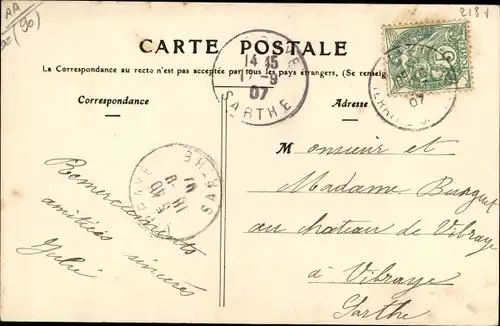 AA
(90)
218 V
CARTE POSTALE
La Correspondance au recto n'est pas acceptée par tous les pays étrangers. (Se renseig
Correspondance
Adresse
14 15
17 -9
07
SARTHE
07
SARTHE
Remerciements
amitiés sincères
Julie
Monsieur et
Madame
au château de Vibraye
à Vibraye
Sarthe